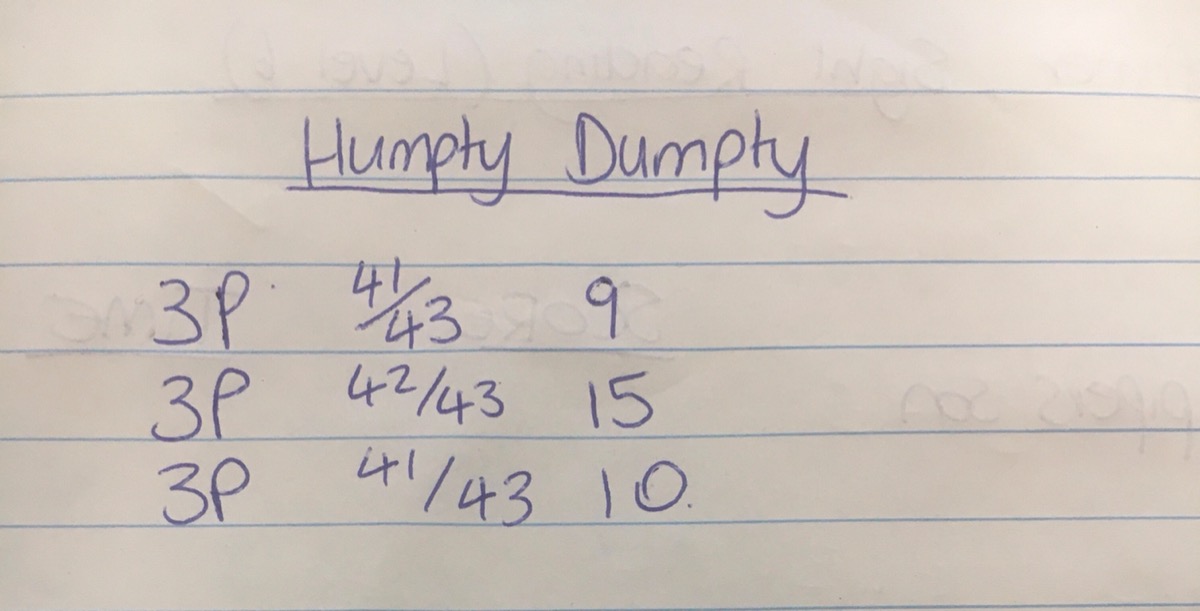 Humpty Dumpty
3P 41/43 9
3P 42/43 15
3P 41/43 10.